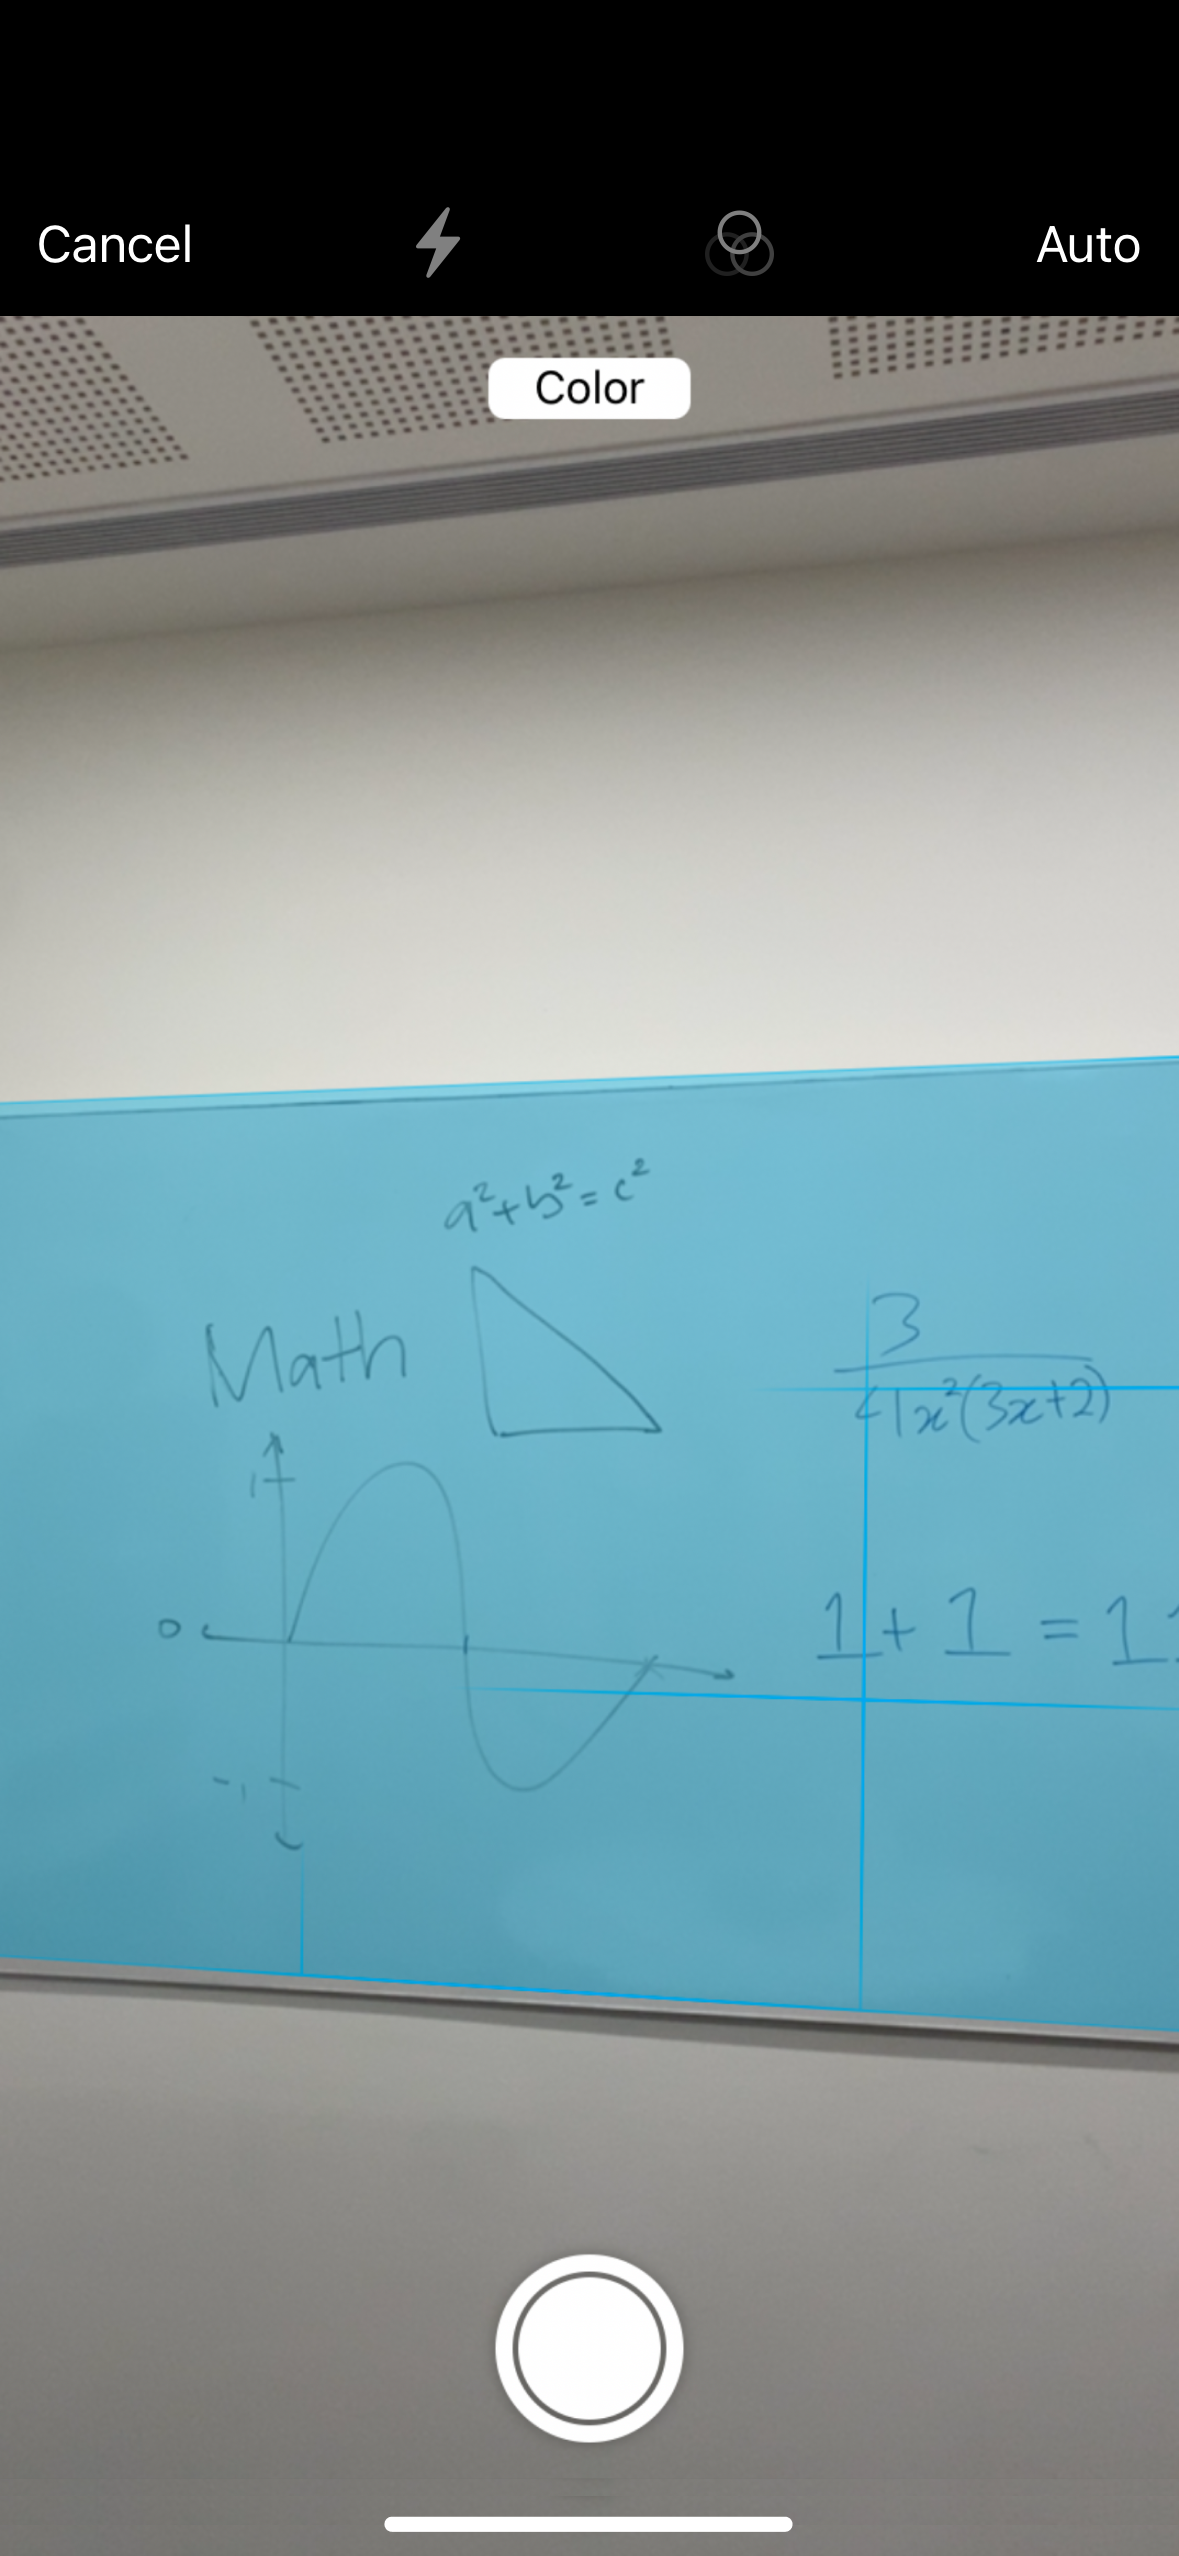 Cancel Auto
Color
a²+b²=c²
Math
3
41x²(3x+2)
1
0
-1
1+1=11